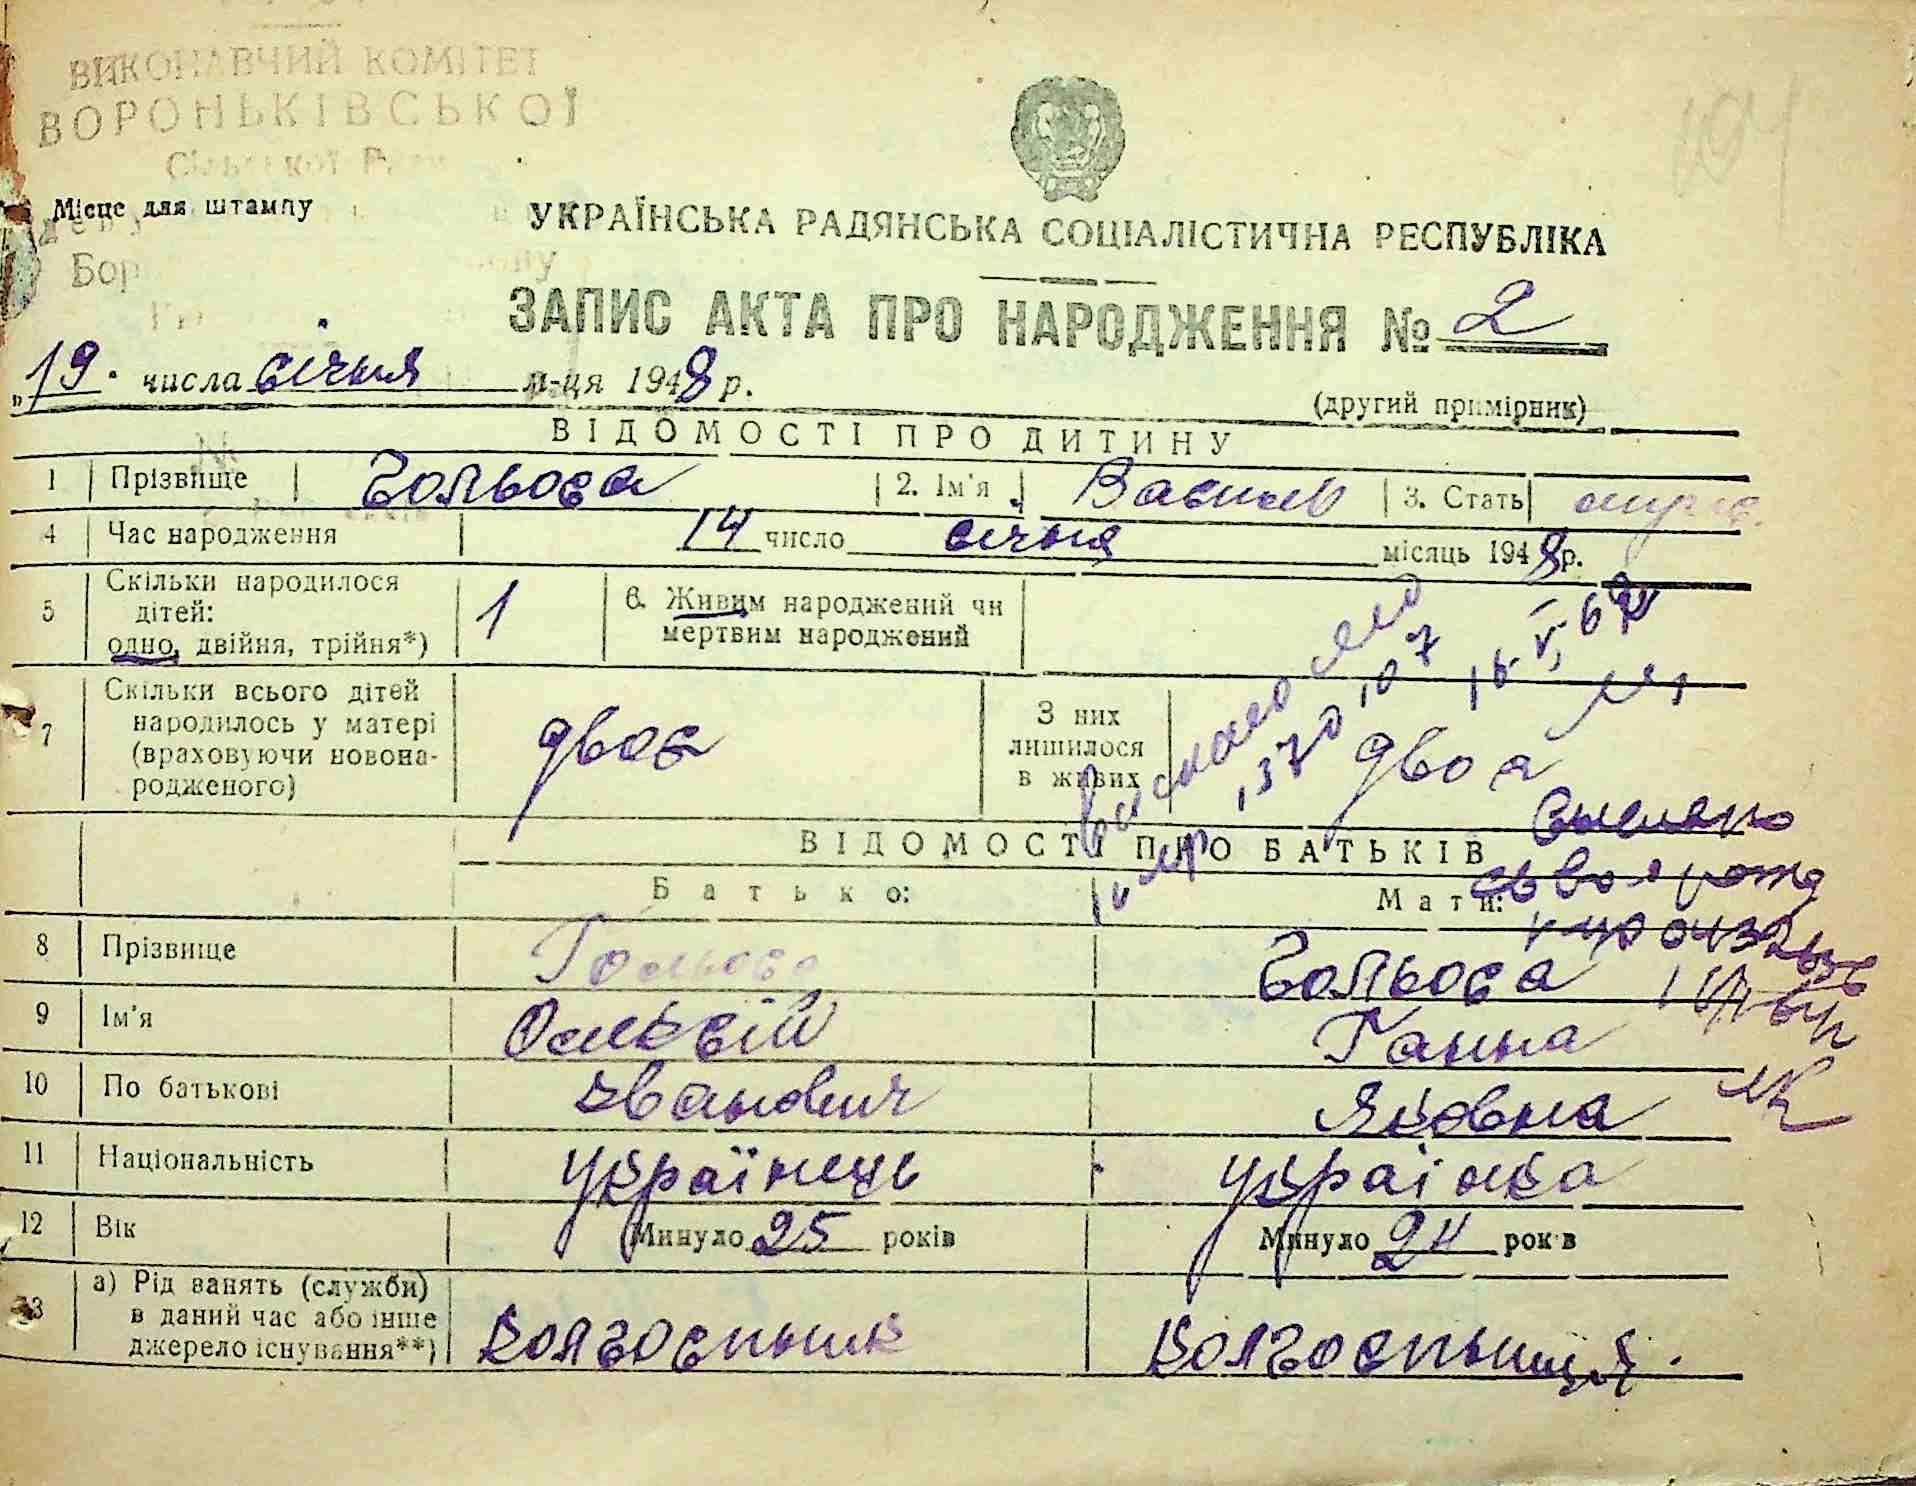 ВИКОНАВЧИЙ КОМІТЕТ
ВОРОНЬКІВСЬКОЇ
Сільської Ради
Місце для штампу
Бор
194
УКРАЇНСЬКА РАДЯНСЬКА СОЦІАЛІСТИЧНА РЕСПУБЛІКА
ЗАПИС АКТА ПРО НАРОДЖЕННЯ № 2
„19" числа січня м-ця 1948 р.
(другий примірник)
ВІДОМОСТІ ПРО ДИТИНУ
1 Прізвище Гольоса 2. Ім'я Василь 3. Стать
4 Час народження 14 число січня місяць 1948 р.
5 Скільки народилося дітей: одно, двійня, трійня*) 1 6. Живим народжений чи мертвим народжений
7 Скільки всього дітей народилось у матері (враховуючи новонародженого) двоє З них лишилося в живих двоє
ВІДОМОСТІ ПРО БАТЬКІВ
Батько: Мати:
8 Прізвище Гольоса Гольоса
9 Ім'я Олексій Ганна
10 По батькові Іванович Яковна
11 Національність українець українка
12 Вік Минуло 25 років Минуло 24 років
13 а) Рід занять (служби) в даний час або інше джерело існування**) колгоспник колгоспниця.